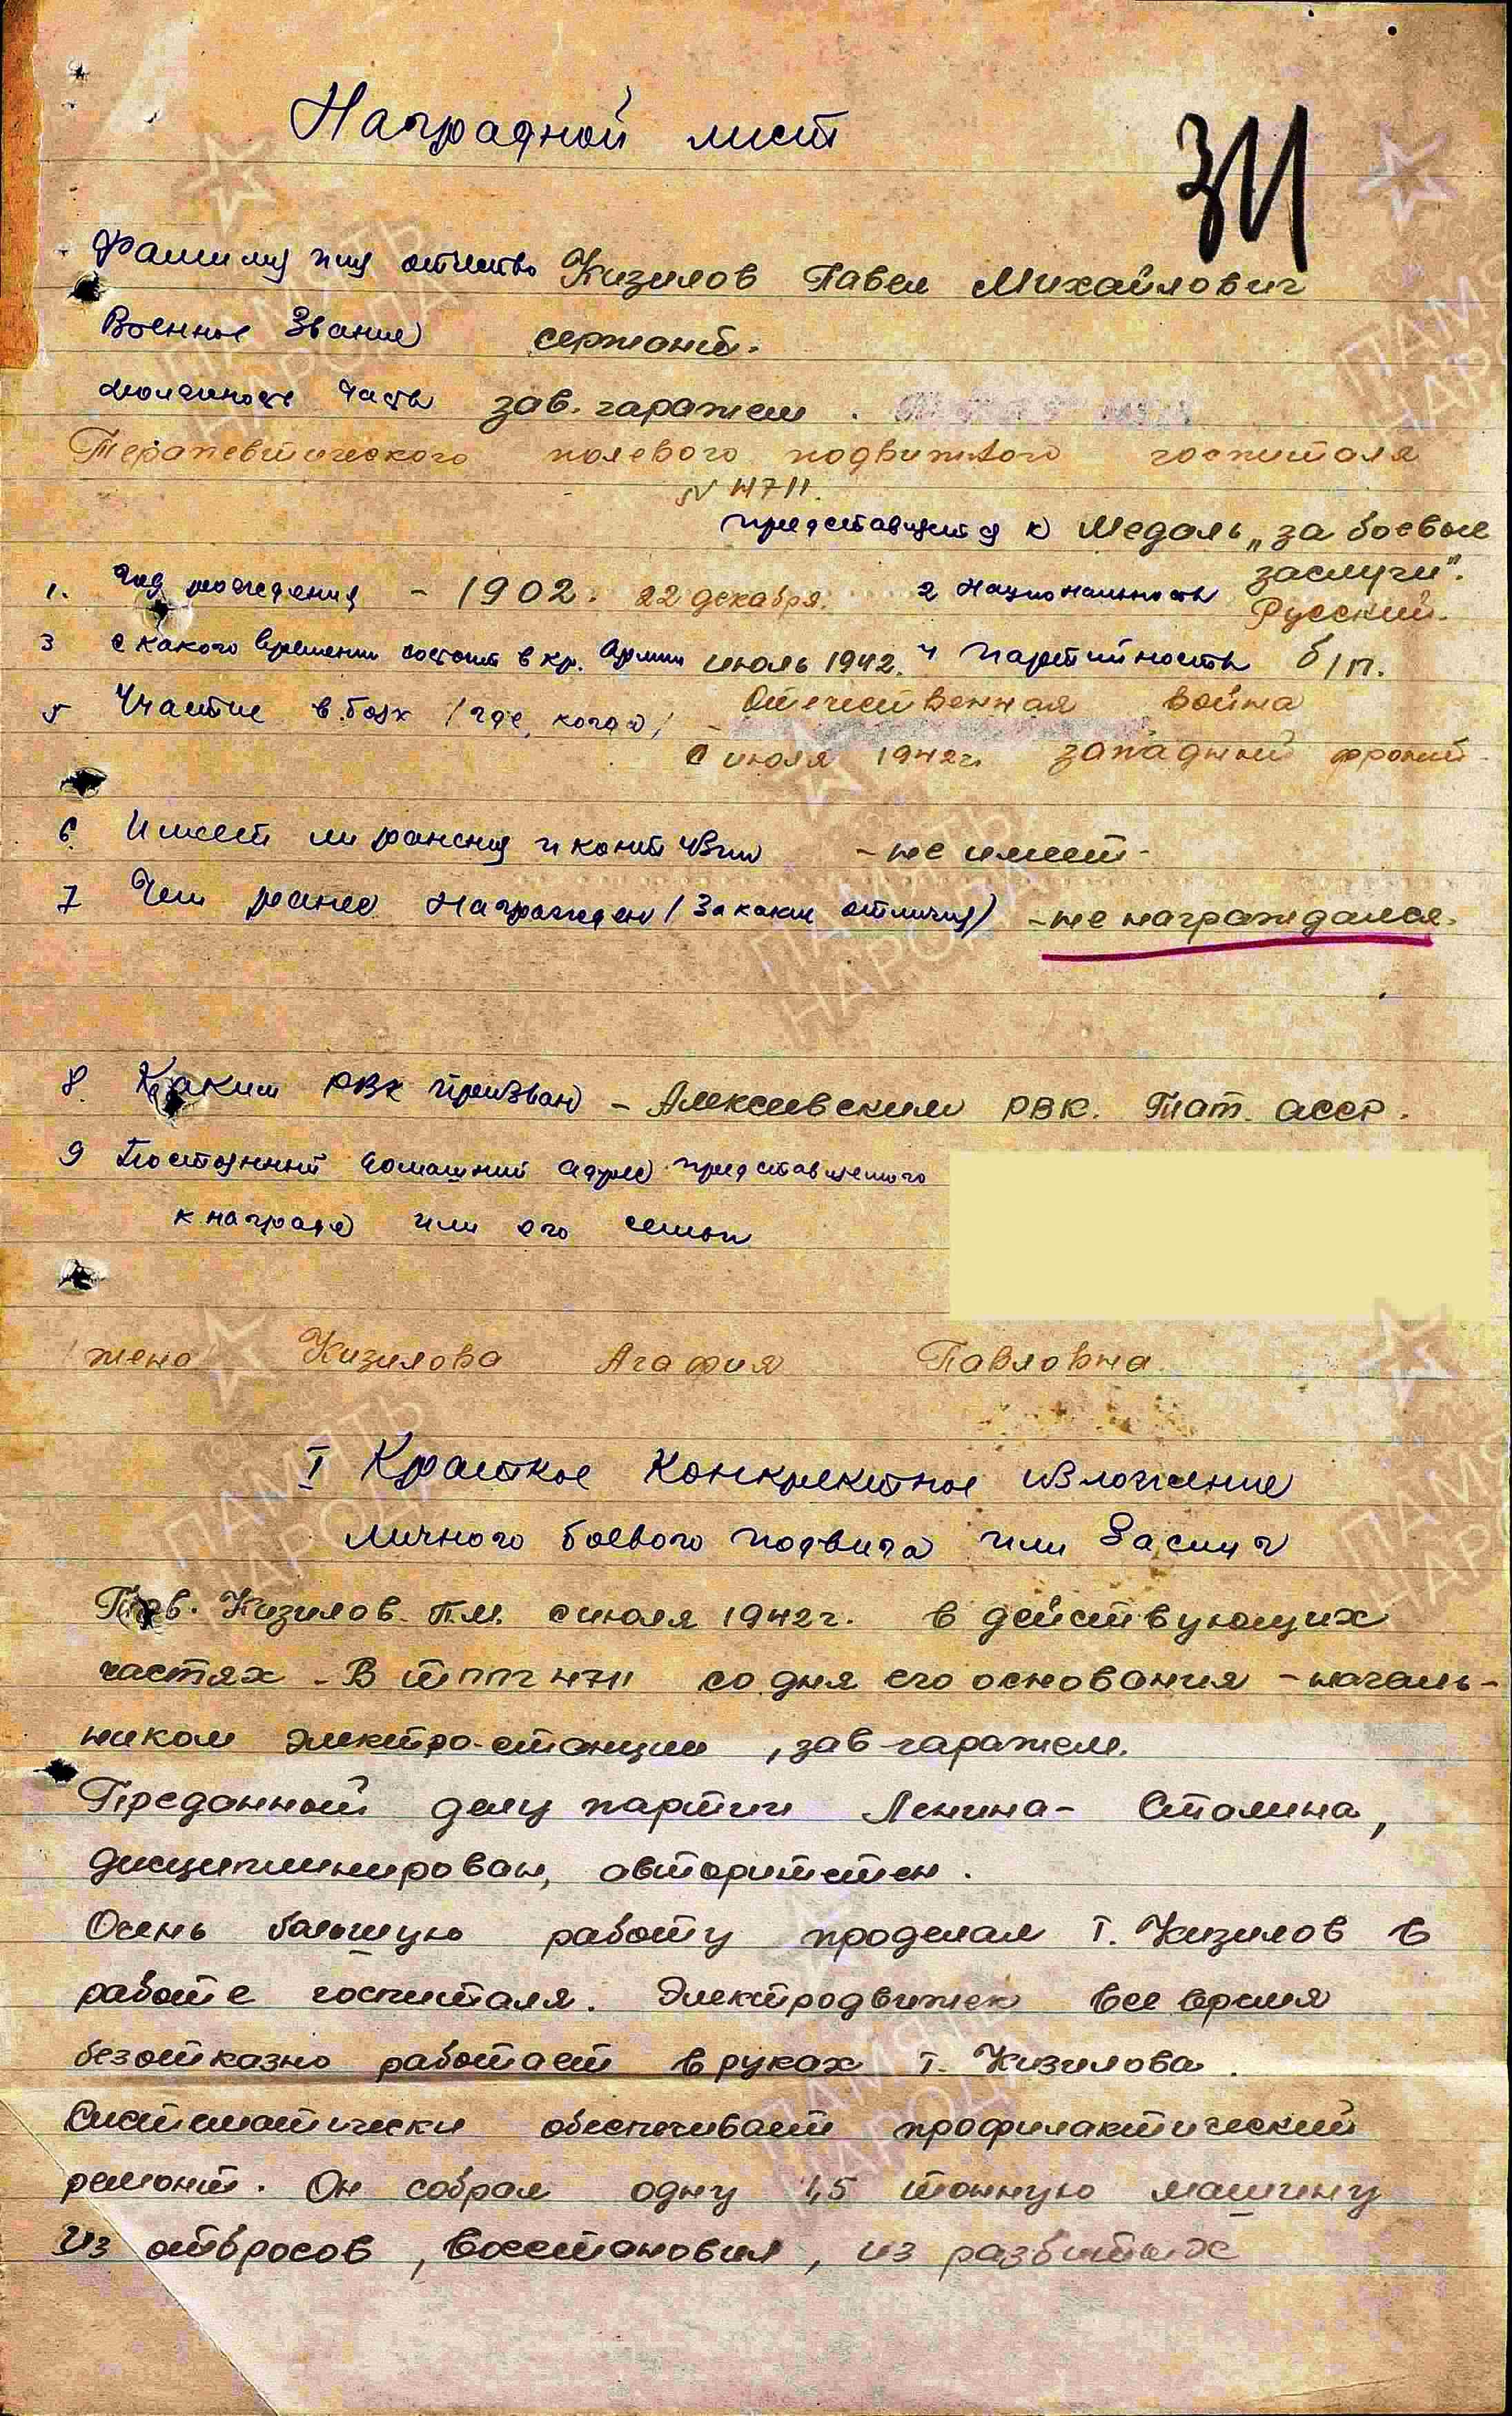 Наградной лист
311
Фамилия имя отчество Кизилов Павел Михайлович
Военное Звание сержант.
должность часть зав. гаражем.
Терапевтического полевого подвижного госпиталя
№ 4711.
представляется к Медаль „за боевые
заслуги".
1. Год рождения - 1902. 22 декабря. 2 Национальность Русский.
3 с какого времени состоит в кр. Армии июль 1942. 4 Партийность б/п.
5 Участие в боях (где, когда) - Отечественная война
с июля 1942г. западный фронт-
6. Имеет ли ранения и контузии - не имеет-
7 Чем ранее Награжден (За какие отличия) - не награждался.
8. Каким РВК призван - Алексеевским РВК. Тат. асср.
9 Постоянный домашний адрес представляемого
к награде или его семьи
жена Кизилова Агафия Павловна
I Краткое Конкретное изложение
личного боевого подвига или Заслуг
Тов. Кизилов П.М. с июля 1942г. в действующих
частях - В ТППГ 4711 со дня его основания - началь-
ником электро-станции, зав-гаражем.
Преданный делу партии Ленина- Сталина,
дисциплинирован, авторитетен.
Очень большую работу проделал т. Кизилов в
работе госпиталя. Электродвижек все время
безотказно работает в руках т. Кизилова.
Систематически обеспечивает профилактический
ремонт. Он собрал одну 1,5 тонную машину
из отбросов, восстановил, из разбитых
ПАМЯТЬ НАРОДА